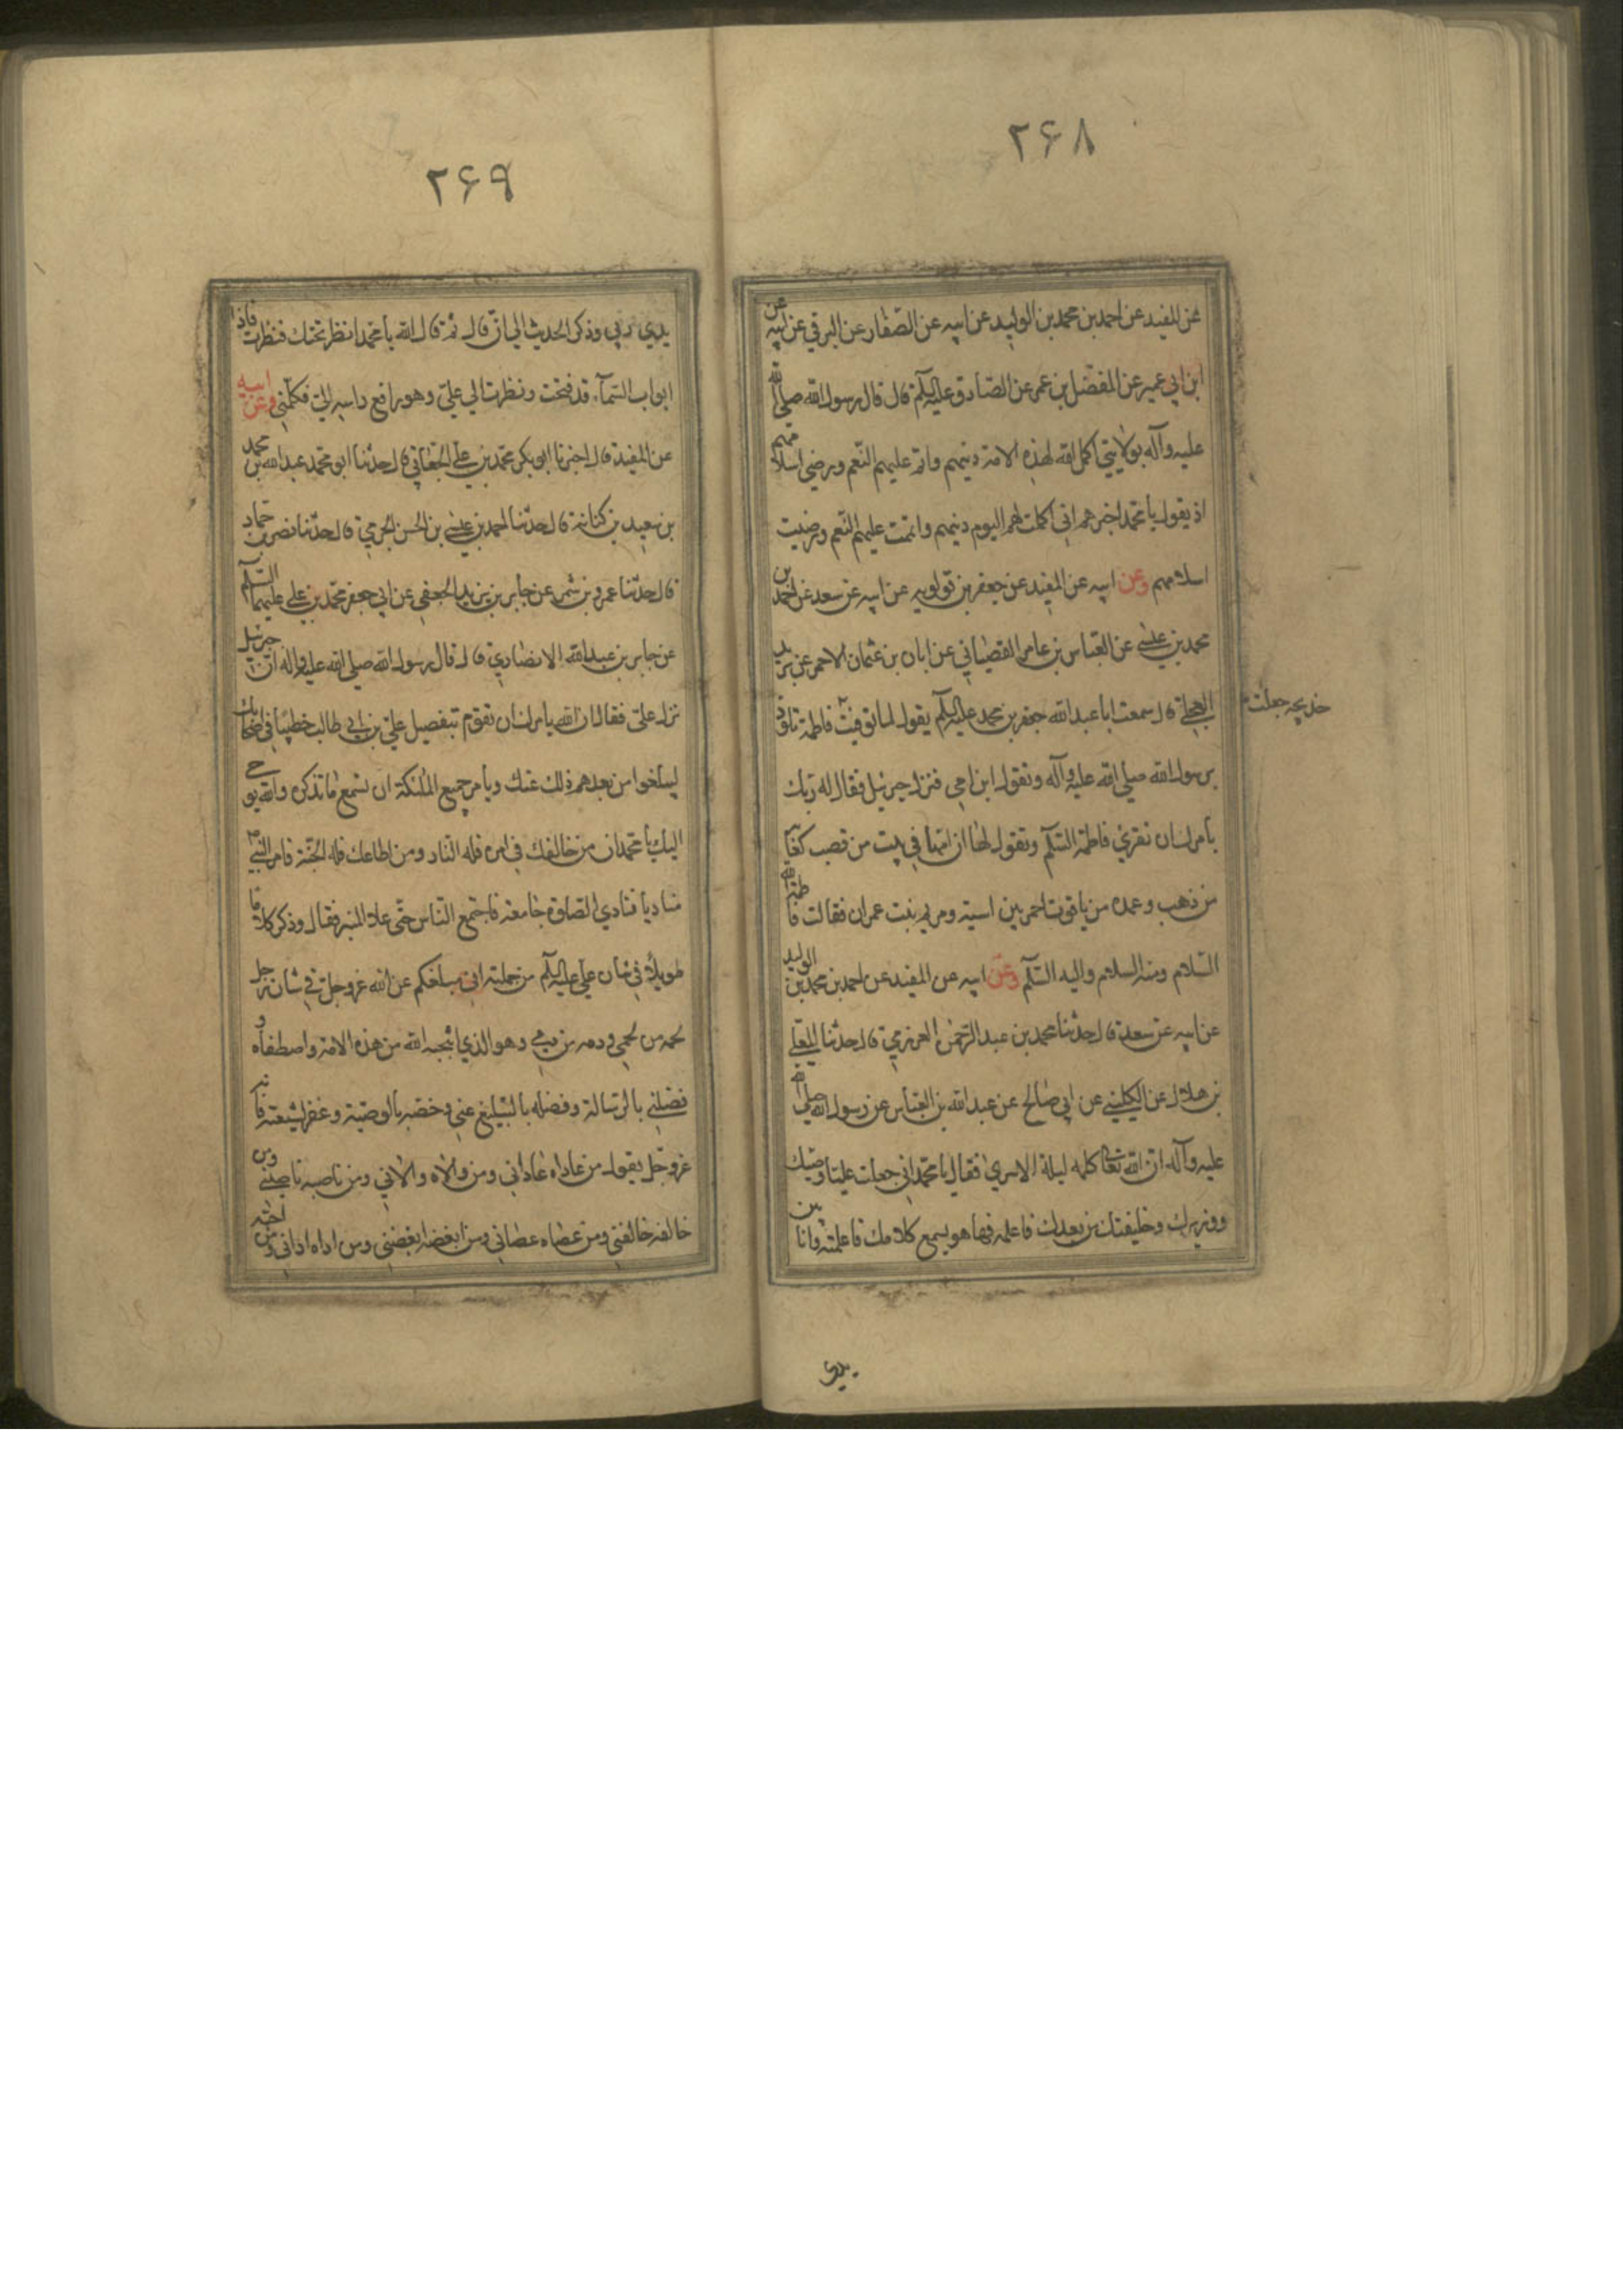 ۲۶۸
عن المفيد عن احمد بن محمد بن الوليد عن ابيه عن الصفار عن البرقي عن ابيه عن
ابن ابي عمير عن المفضل بن عمر عن الصادق عليه السلم قال قال رسول الله صلى الله
عليه وآله بولايتي اكمل الله لهذه الامة دينهم واتم عليهم النعم ورضي اسلامهم
اذ يقول يا محمد اخبرهم اني اكملت لهم اليوم دينهم واتممت عليهم النعم ورضيت
اسلامهم وعن ابيه عن المفيد عن جعفر بن قولويه عن ابيه عن سعد عن احمد بن
محمد بن عيسى عن العباس بن عامر القصباني عن ابان بن عثمان الاحمر عن بريد
العجلي قال سمعت ابا عبد الله جعفر بن محمد عليه السلم يقول لما توفيت فاطمة تلوذ
خديجه جعلت
برسول الله صلى الله عليه وآله وتقول اين امي فنزل جبرئيل فقال له ربك
يأمرك ان تقرئ فاطمة السلم وتقول لها ان امها في بيت من قصب كعابه
من ذهب وعمده من ياقوت احمر بين اسية ومريم بنت عمران فقالت فاطمة الله
السلام ومنه السلام واليه السلم وعن ابيه عن المفيد عن احمد بن محمد بن الوليد
عن ابيه عن سعد قال حدثنا محمد بن عبد الرحمن العرزمي قال حدثنا المعلى
بن هلال عن الكلبي عن ابي صالح عن عبد الله بن العباس عن رسول الله صلى الله
عليه وآله ان الله تعالى كلمه ليلة الاسرى فقال يا محمد اني جعلت عليا وصيك
ووزيرك وخليفتك من بعدك فاعلمه فها هو يسمع كلامك فاعلمته وانا بين
يدي
۲۶۹
يدي ربي وذكر الحديث الى ان قال ثم قال الله يا محمد انظر تحتك فنظرت فاذا
ابواب السمآء قد فتحت ونظرت الي علي وهو رافع راسه الي فكلمني وعن ابيه
عن المفيد قال اخبرنا ابو بكر محمد بن علي الجعابي قال حدثنا ابو محمد عبد الله بن محمد
بن سعيد بن كنانة قال حدثنا احمد بن عيسى بن الحسن الجرمي قال حدثنا نصر بن حماد
قال حدثنا عمرو بن شمر عن جابر بن يزيد الجعفي عن ابي جعفر محمد بن علي عليهما السلم
عن جابر بن عبد الله الانصاري قال قال رسول الله صلى الله عليه واله ان جبرئيل
نزل علي فقال ان الله يامرك ان تقوم بتفضيل علي بن ابي طالب خطيبا في اصحابك
ليبلغوا من بعدهم ذلك عنك ويأمر جميع الملئكة ان تسمع ما تذكره والله يوحي
اليك يا محمد ان من خالفك في امره فله النار ومن اطاعك فله الجنة فامر النبي
مناديا فنادي الصلوة جامعة فاجتمع الناس حتى علا المنبر فقال وذكر كلاما
طويلا في شان علي عليه السلم من جملته اني مبلغكم عن الله عز وجل في شان رجل
لحمه من لحمي ودمه من دمي وهو الذي انتجبه الله من هذه الامة واصطفاه و
فضلني بالرسالة وفضله بالتبليغ عني وخصه بالوصية وغفر لشيعته فانه
عز وجل يقول من عاداه عاداني ومن والاه والاني ومن ناصبه ناصبني ومن
خالفه خالفني ومن عصاه عصاني ومن ابغضه ابغضني ومن اذاه اذاني ومن احبه